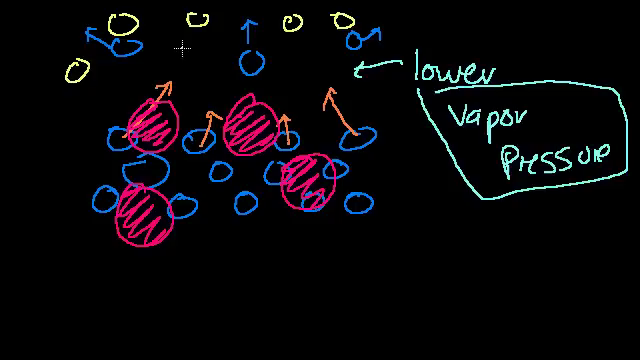 lower
vapor
Pressure